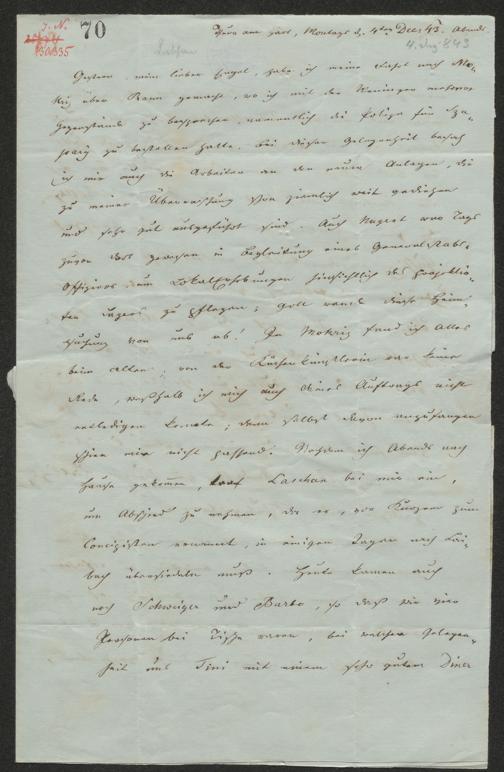 J. N.
70
130335
Thurn am Hart, Montags d. 4ten Dec. 43. Abends.
4. Dez. 843
Gestern, mein lieber Engel, habe ich meine nach Mo-
kriz über Rann gemacht, wo ich mit der
Gegenstände zu besprechen, namentlich die für
zu bestellen hatte. Bei dieser Gelegenheit besah
ich mir auch die Arbeiten an den neuen Anlagen, die
zu meiner Überraschung schon ziemlich weit gediehen
und sehr gut ausgeführt sind. Auch Nugent war Tags
zuvor dort gewesen in Begleitung eines Generalstabs-
Offiziers um Lokalerhebungen hinsichtlich des projektir-
ten Lagers zu pflegen; Gott wende diese Heim-
suchung von uns ab! In Mokriz fand ich Alles
beim alten; von der Küchenkünstlerin war keine
Rede, weßhalb ich mich auch Deines Auftrags nicht
entledigen konnte; denn selbst davon anzufangen
schien mir nicht passend. Nachdem ich Abends nach
Hause gekommen, traf Laschan bei mir ein,
um Abschied zu nehmen, da er, vor Kurzem zum
Concipisten ernannt, in einigen Tagen nach Lai-
bach übersiedeln muß. Heute kamen auch
noch Schweiger und Barbo, so daß wir vier
Personen bei Tische waren, bei welcher Gelegen-
heit uns Tini mit einem sehr guten Diner